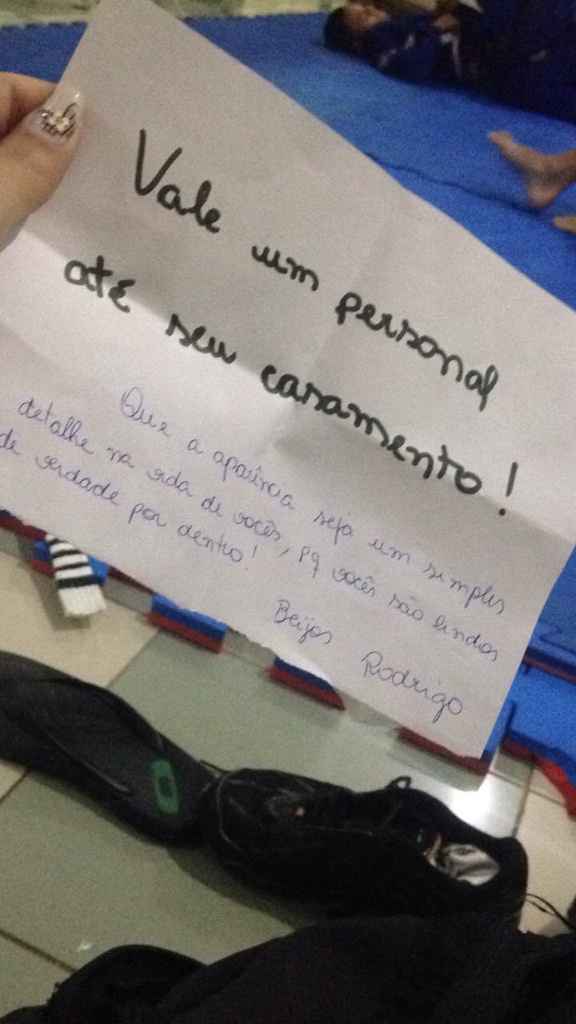 Vale um personal
até seu casamento!
Que a aparência seja um simples
detalhe na vida de vocês, pq vocês são lindos
de verdade por dentro!
Beijos Rodrigo